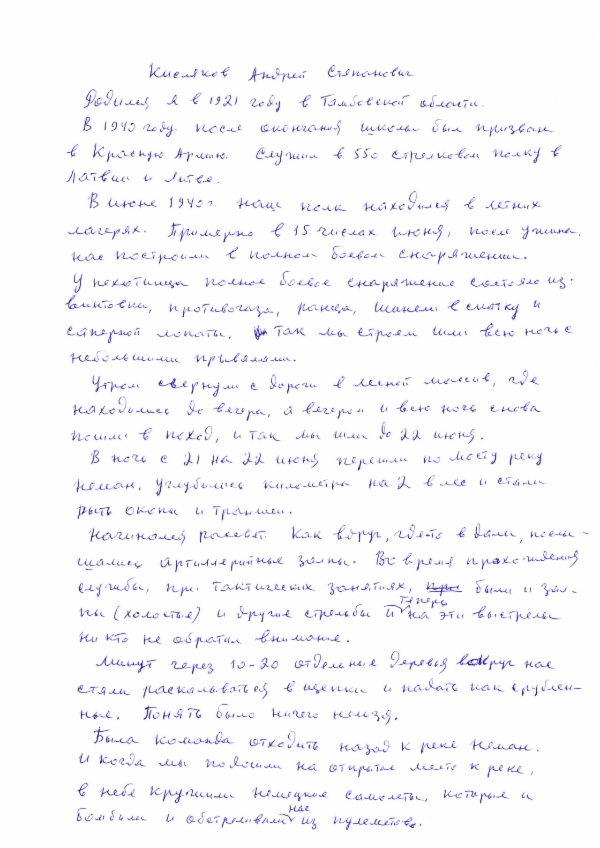 Кисляков Андрей Степанович
Родился я в 1921 году в Тамбовской области.
В 1940 году после окончания школы был призван
в Красную Армию. Служил в 550 стрелковом полку в
Латвии и Литве.
В июне 1940г наш полк находился в летних
лагерях. Примерно в 15 числах июня, после ужина,
нас построили в полном боевом снаряжении.
У пехотинца полное боевое снаряжение состояло из:
винтовки, противогаза, ранца, шинели в скатку и
саперной лопаты. Так мы строем шли всю ночь с
небольшими привалами.
Утром свернули с дороги в лесной массив, где
находились до вечера, а вечером и всю ночь снова
пошли в поход, и так мы шли до 22 июня.
В ночь с 21 на 22 июня перешли по мосту реку
Неман, углубились километра на 2 в лес и стали
рыть окопы и траншеи.
Начинался рассвет. Как вдруг, где-то в дали, послы-
шались артиллерийные залпы. Во время прохождения
службы, при тактических занятиях, при были и зал-
пы (холостые) и другие стрельбы и теперь на эти выстрелы
ни кто не обратил внимание.
Минут через 10-20 отдельные деревья вокруг нас
стали раскалываться в щепки и падать как срублен-
ные. Понять было ничего нельзя.
Была команда отходить назад к реке Неман.
И когда мы подошли на открытое место к реке,
в небе кружили немецкие самолеты, которые и
бомбили и обстреливали нас из пулеметов.